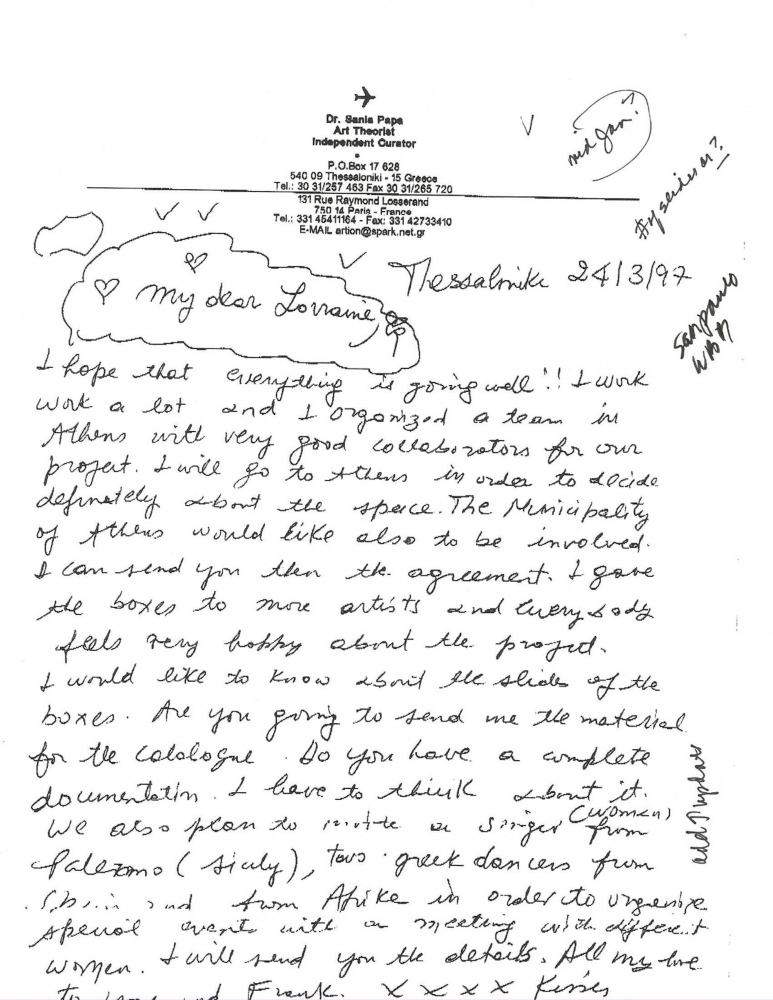 Dr. Sania Papa
Art Theorist
Independent Curator
P.O.Box 17 628
540 09 Thessaloniki - 15 Greece
Tel.: 30 31/257 463 Fax 30 31/265 720
131 Rue Raymond Losserand
750 14 Paris - France
Tel.: 331 45411164 - Fax: 331 42733410
E-MAIL artion@spark.net.gr
mid Jan?
San paulo
Thessalonike 24/3/97
My dear Lorraine,
I hope that everything is going well!! I work
work a lot and I organized a team in
Athens with very good collaborators for our
project. I will go to Athens in order to decide
definetely about the space. The Municipality
of Athens would like also to be involved.
I can send you then the agreement. I gave
the boxes to more artists and everybody
feels very happy about the project.
I would like to know about the slides of the
boxes. Are you going to send me the material
for the catalogue. Do you have a complete
documentation. I have to think about it.
We also plan to invite a singer (women) from
Palermo (Sicily), two greek dancers from
and from Afrike in order to organize
special events with a meeting with different
women. I will send you the details. All my love
to and Frank. X X X X Kisses
add Nuphats